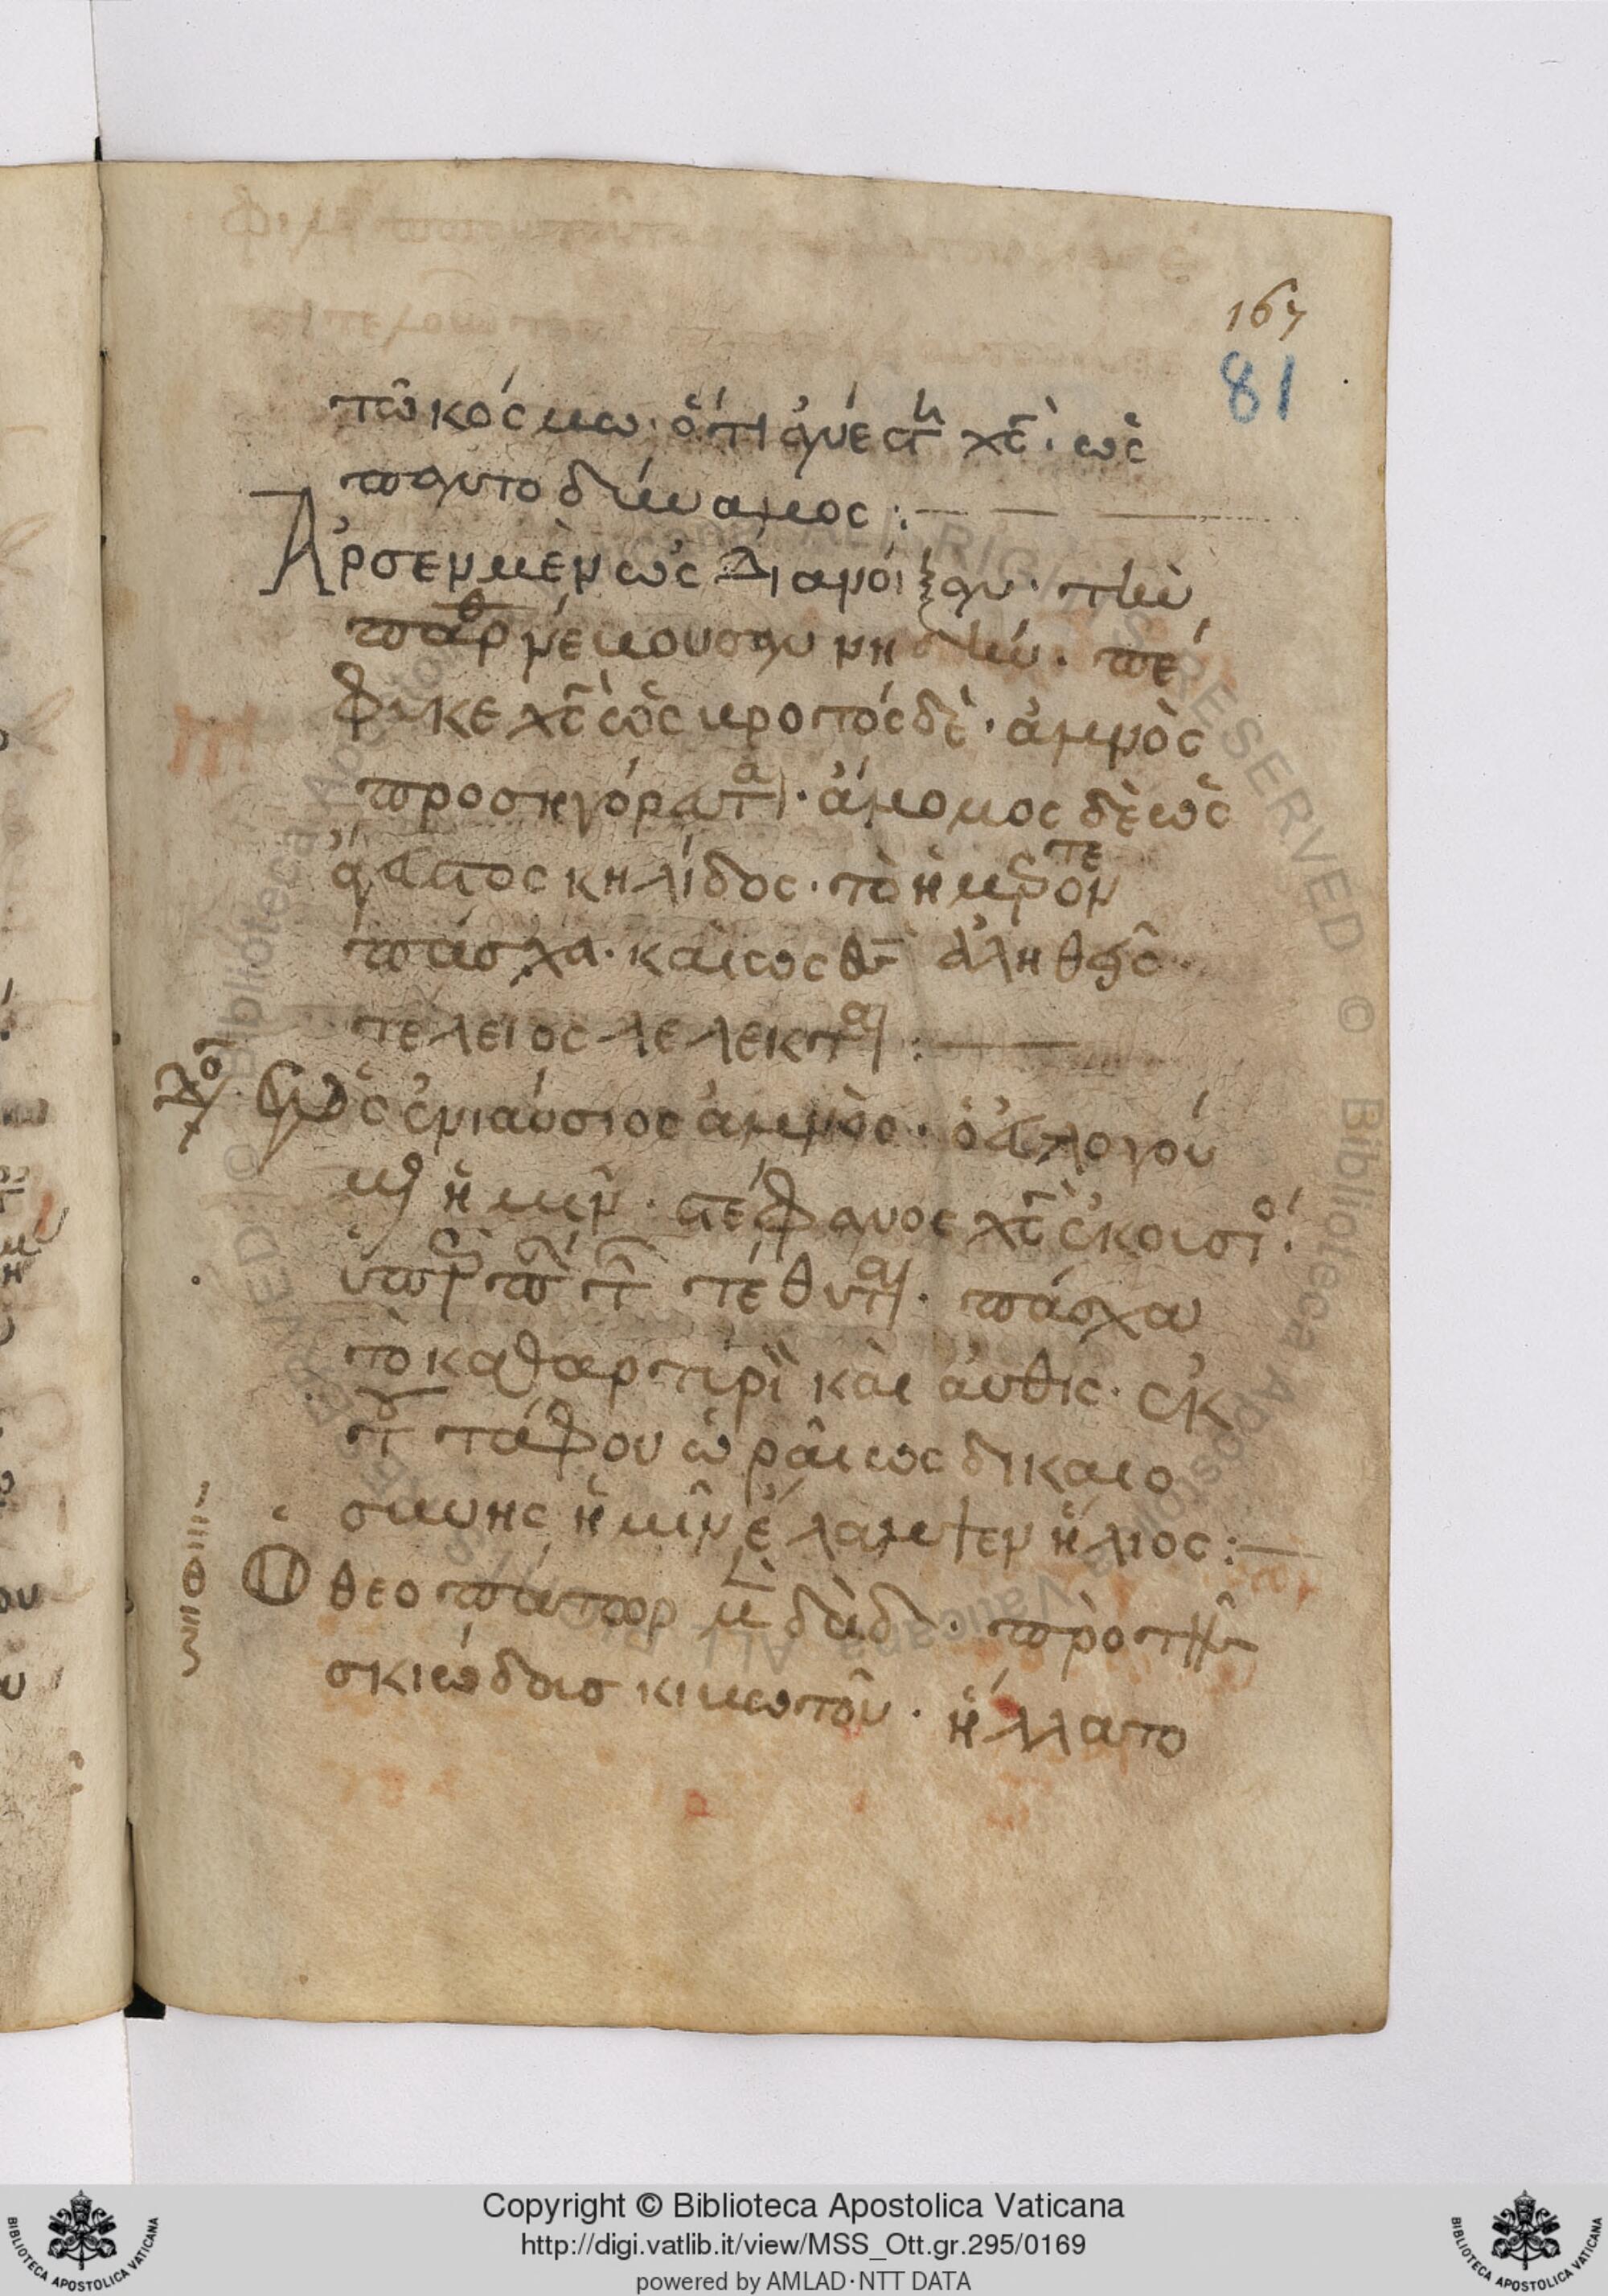 167
81
τῶ κόσμω· ὅτι ἀνέστη χς· ὡς
παντοδύναμος :—
Ἄρσεν μὲν ὡς διανοίξαν· τὴν
παρθενεύουσαν νηδὺν· πέ
φυκε χς ὡς βροτὸς δὲ· ἀμνὸς
προσηγόρευται· ἄμωμος δὲ ὡς
ἄγευστος κηλίδος· τὸ ἡμέτερον
πάσχα· καὶ ὡς θς ἀληθὴς
τέλειος λέλεκται :—
Ὡς ἐνιαύσιος ἀμνὸς· ὁ εὐλογού
μενος ἡμῖν· στέφανος χς ἑκουσίως
ὑπὲρ πάντων τέθυται· πάσχα
τὸ καθαρτήριον καὶ αὖθις· ἐκ
τοῦ τάφου ὡραῖος δικαιο
σύνης ἡμῖν ἔλαμψεν ἥλιος :—
Ὁ θεοπάτωρ μὲν δαδ· πρὸ τῆς
σκιώδους κιβωτοῦ· ἥλλατο
Copyright © Biblioteca Apostolica Vaticana
http://digi.vatlib.it/view/MSS_Ott.gr.295/0169
powered by AMLAD·NTT DATA
BIBLIOTECA APOSTOLICA VATICANA
BIBLIOTECA APOSTOLICA VATICANA